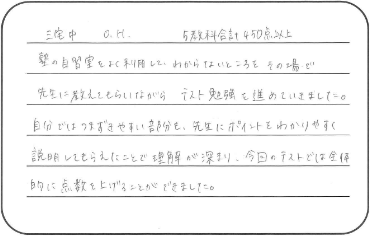 三宅中 O.H. 5教科合計450点以上
塾の自習室をよく利用して、わからないところをその場で
先生に教えてもらいながら テスト勉強を進めていきました。
自分ではつまずきやすい部分も、先生にポイントをわかりやすく
説明してもらえたことで理解が深まり、今回のテストでは全体
的に点数を上げることができました。